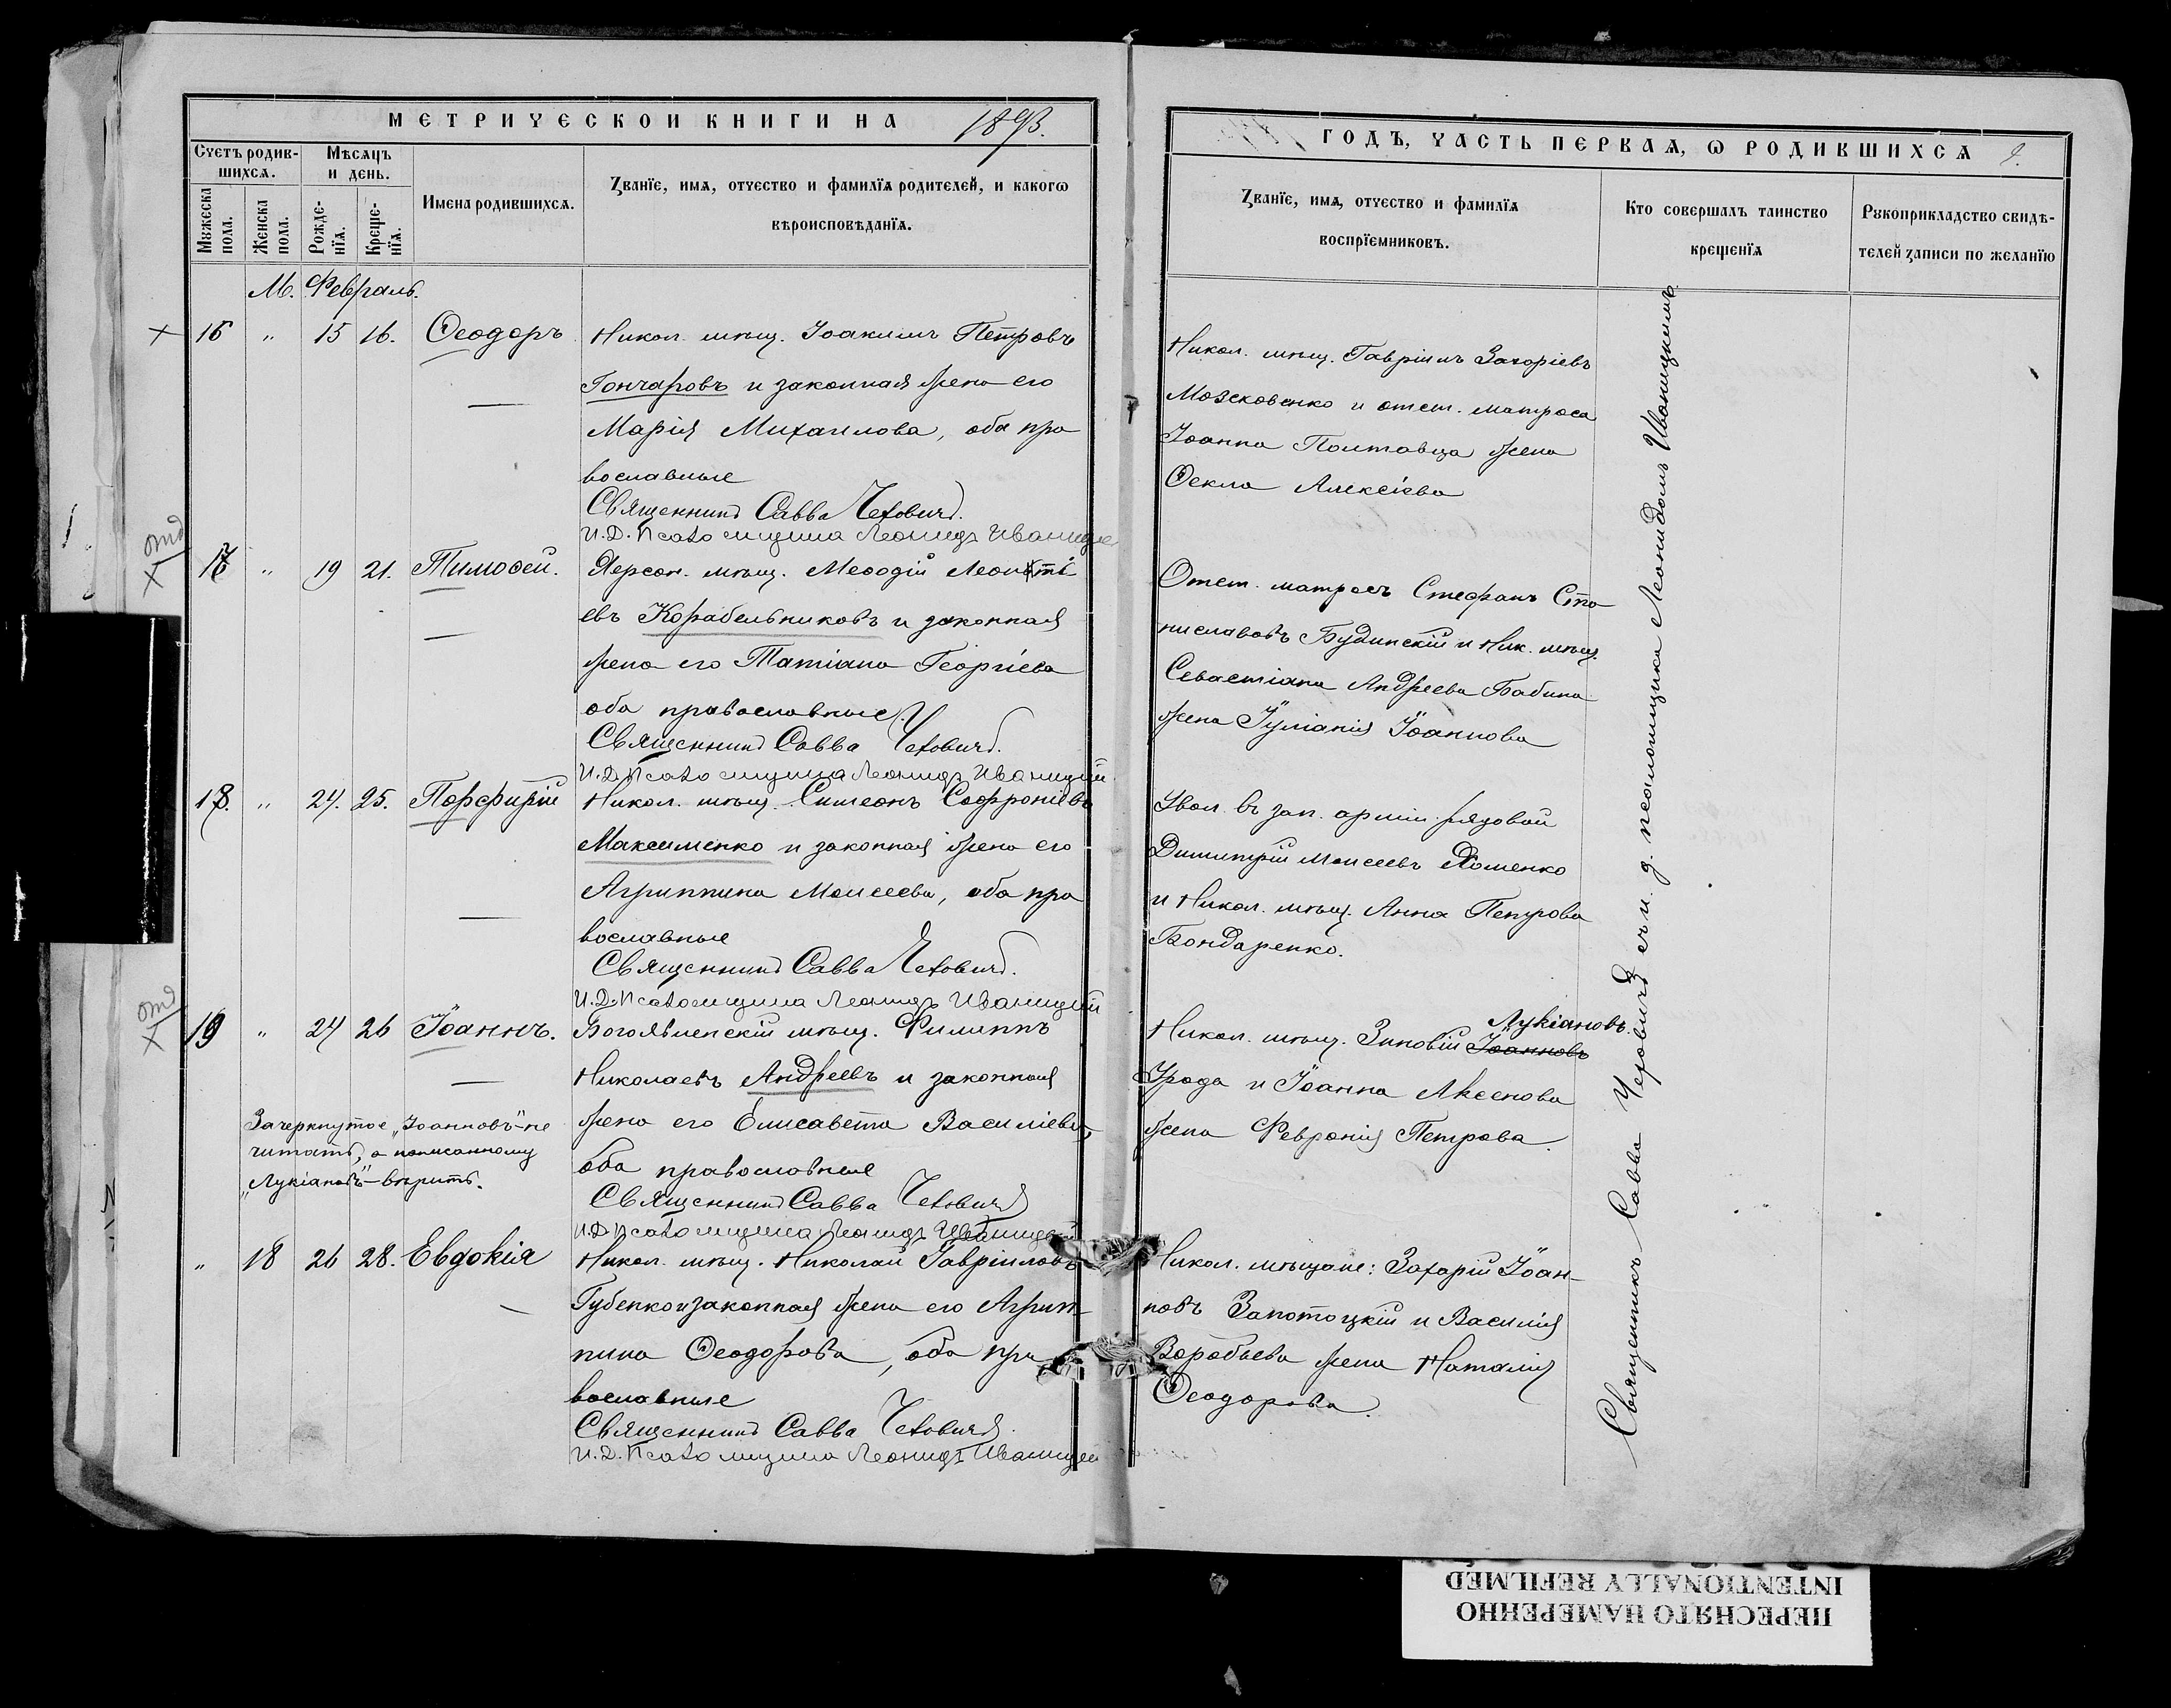 МЕТРИЧЕСКОЙ КНИГИ НА 1893.
Счетъ родив-
шихся.
Мѣсяцъ
и день.
Имена родившихся.
Званїе, имя, отчество и фамилїя родителей, и какогѡ
вѣроисповѣданїя.
Мꙋжеска
пола.
Женска
пола.
Рожде-
нїя.
Креще-
нїя.
М. Февраль.
16 " 15 16. Ѳеодоръ
Никол. мѣщ. Іоакимъ Петровъ
Гончаровъ и законная жена его
Марія Михаилова, оба пра
вославные
Священникъ Савва Чехович.
И.Д. Псаломщика Леонидъ Иваницкій
отд
17 " 19 21. Тимоѳей.
Херсон. мѣщ. Меѳодій Леонті
евъ Корабельниковъ и законная
жена его Татіана Георгіева
оба православные.
Священникъ Савва Чехович.
И.Д. Псаломщика Леонидъ Иваницкій
18. " 24. 25. Порфирій
Никол. мѣщ. Симеонъ Софроніевъ
Максименко и законная жена его
Агриппина Моисеева, оба пра
вославные
Священникъ Савва Чехович.
И.Д. Псаломщика Леонидъ Иваницкій
отд
19 " 24 26 Іоаннъ.
Богоявленскій мѣщ. Филиппъ
Николаевъ Андреевъ и законная
жена его Елисавета Василіева,
оба православные
Священникъ Савва Чехович
И.Д. Псаломщика Леонидъ Иваницкій
Зачеркнутое „Іоанновъ" не
читать, а написанному
„Лукіановъ" - вѣрить.
" 18 26 28. Евдокія
Никол. мѣщ. Николай Гавріиловъ
Губенко и законная жена его Агрип-
пина Ѳеодорова, оба пра
вославные
Священникъ Савва Чехович
И.Д. Псаломщика Леонидъ Иваницкій
ГОДЪ, ЧАСТЬ ПЕРВАЯ, Ѡ РОДИВШИХСЯ 9.
Званїе, имя, отчество и фамилїя
воспрїемниковъ.
Кто совершалъ таинство
крещенїя
Рꙋкоприкладство свидѣ-
телей записи по желанїю
Никол. мѣщ. Гавріилъ Захаріевъ
Мозсковенко и отст. матроса
Іоанна Полтавца жена
Ѳекла Алексіева
Отст. матросъ Стефанъ Ста
ниславовъ Будинскій и Ник. мѣщ.
Севастіана Андреева Бабина
жена Іуліанія Іоаннова
Увол. въ зап. арміи рядовой
Димитрій Моисеевъ Хоменко
и Никол. мѣщ. Анна Петрова
Бондаренко.
Никол. мѣщ. Зиновій Іоанновъ Лукіановъ.
Урода и Іоанна Аксенова
жена Февронія Петрова.
Никол. мѣщане: Захарій Іоан-
новъ Запотоцкій и Василія
Воробьева жена Наталія
Ѳеодорова.
Священникъ Савва Чеховичъ съ и. д. псаломщика Леонидомъ Иваницкимъ
ПЕРЕСНЯТО НАМЕРЕННО
INTENTIONALLY REFILMED